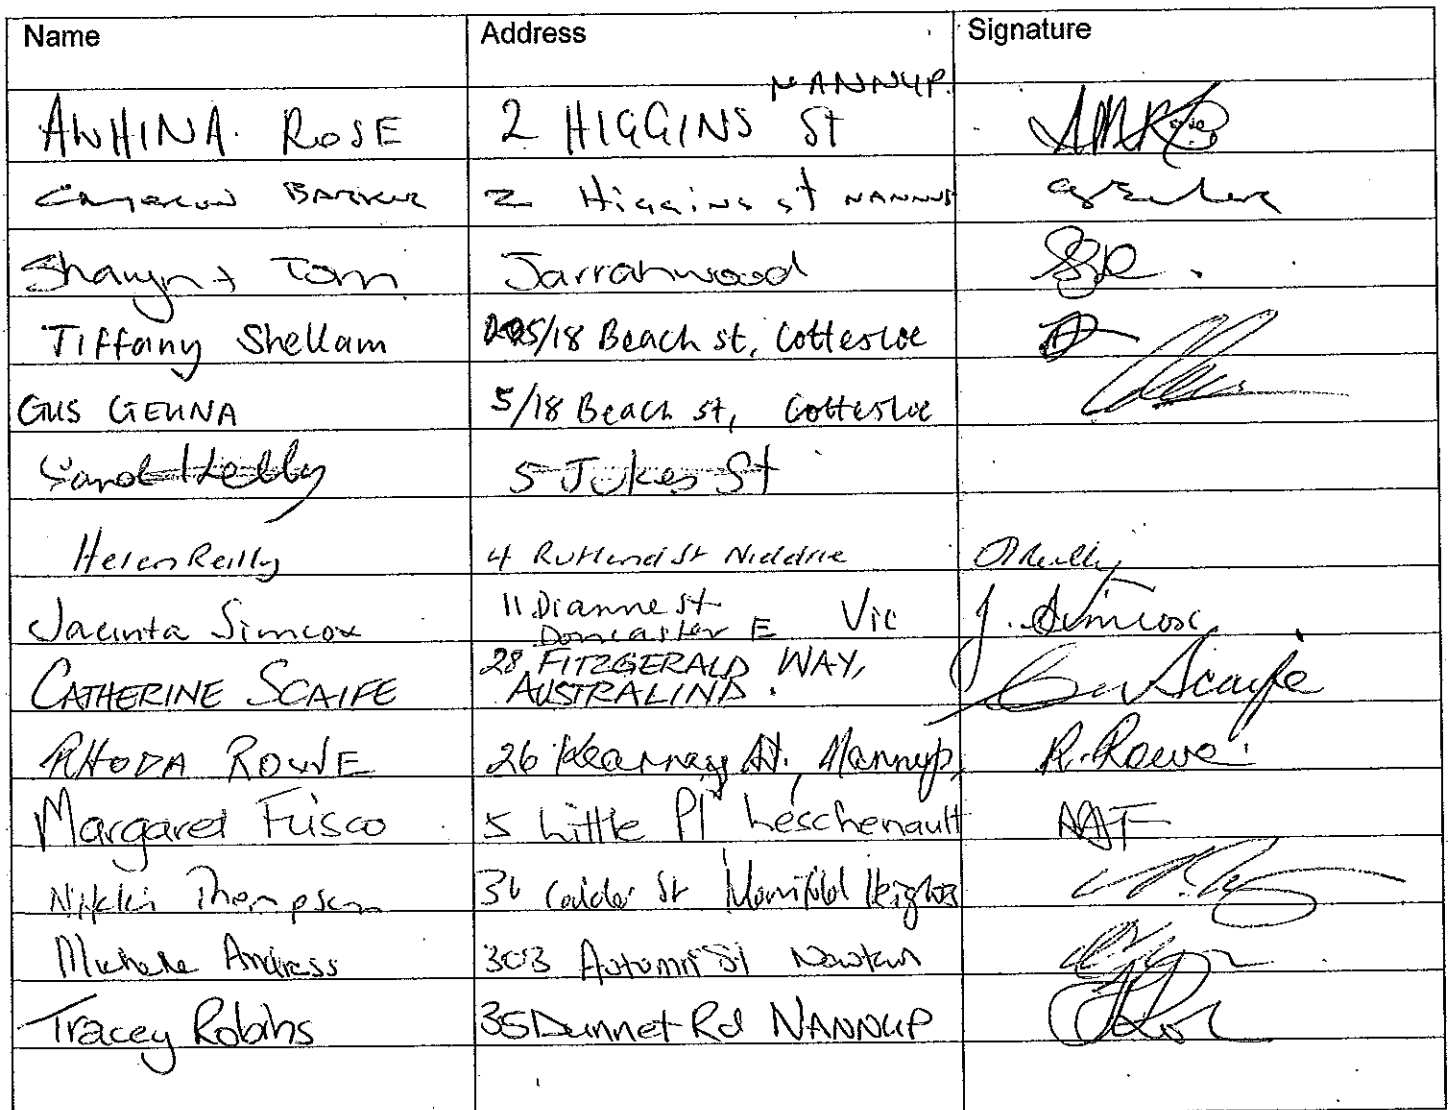 Name Address Signature
NANNUP.
AWHINA. ROSE 2 HIGGINS St
CAMERON BARKER 2 Higgins st NANNUP
Sharyn + Tom Jarrahwood
Tiffany Shellam 5/18 Beach st, Cottesloe
GUS GEUNA 5/18 Beach st, Cottesloe
Carol Kelly 5 Jukes St
Helen Reilly 4 Rutland St Niddrie
11 Dianne st
Jacinta Simcox Doncaster E Vic J. Simcox
28 FITZGERALD WAY,
CATHERINE SCAIFE AUSTRALIND. Scaife
RHODA ROWE 26 Kearney St., Nannup, R. Rowe.
Margaret Fusco 5 Little Pl Leschenault MF
Nikki Thompson Calder St Manifold Heights
Michele Andress 303 Autumn St Newtown
Tracey Robins 35 Dunnet Rd NANNUP